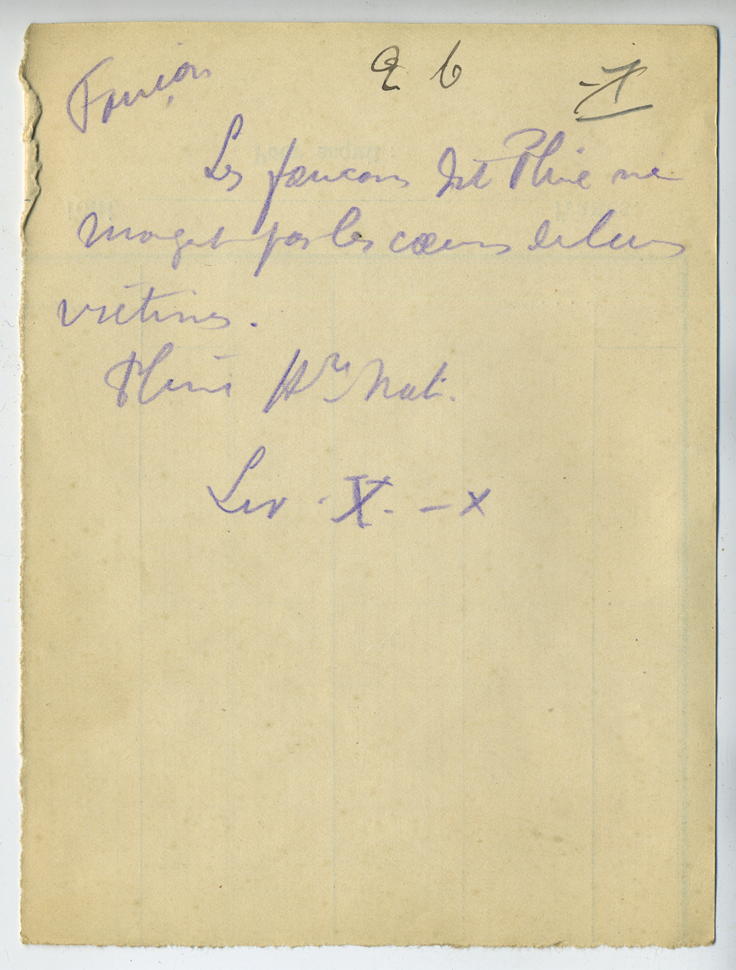 Faucon
9 6
Les faucons dit Pline ne
mangent pas les cœurs de leurs
victimes.
Pline Hre Nat.
Liv. X. – X